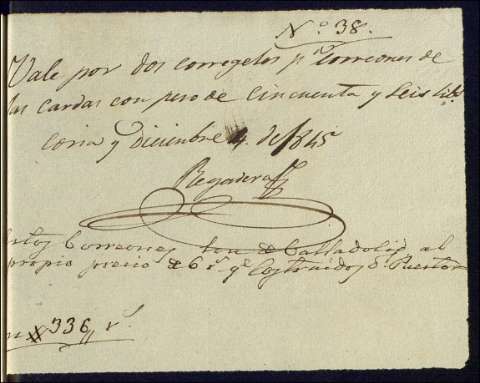 N.º 38.
Vale por dos corregeles p.ª Correones de
las cardas con peso de Cincuenta y Seis lib.s
Coria y Diciembre 4 de 1845
Regadera
estos Correones son de Valladolid al
propio precio de 6 r.s q.e los traidos d.
336,, r.s